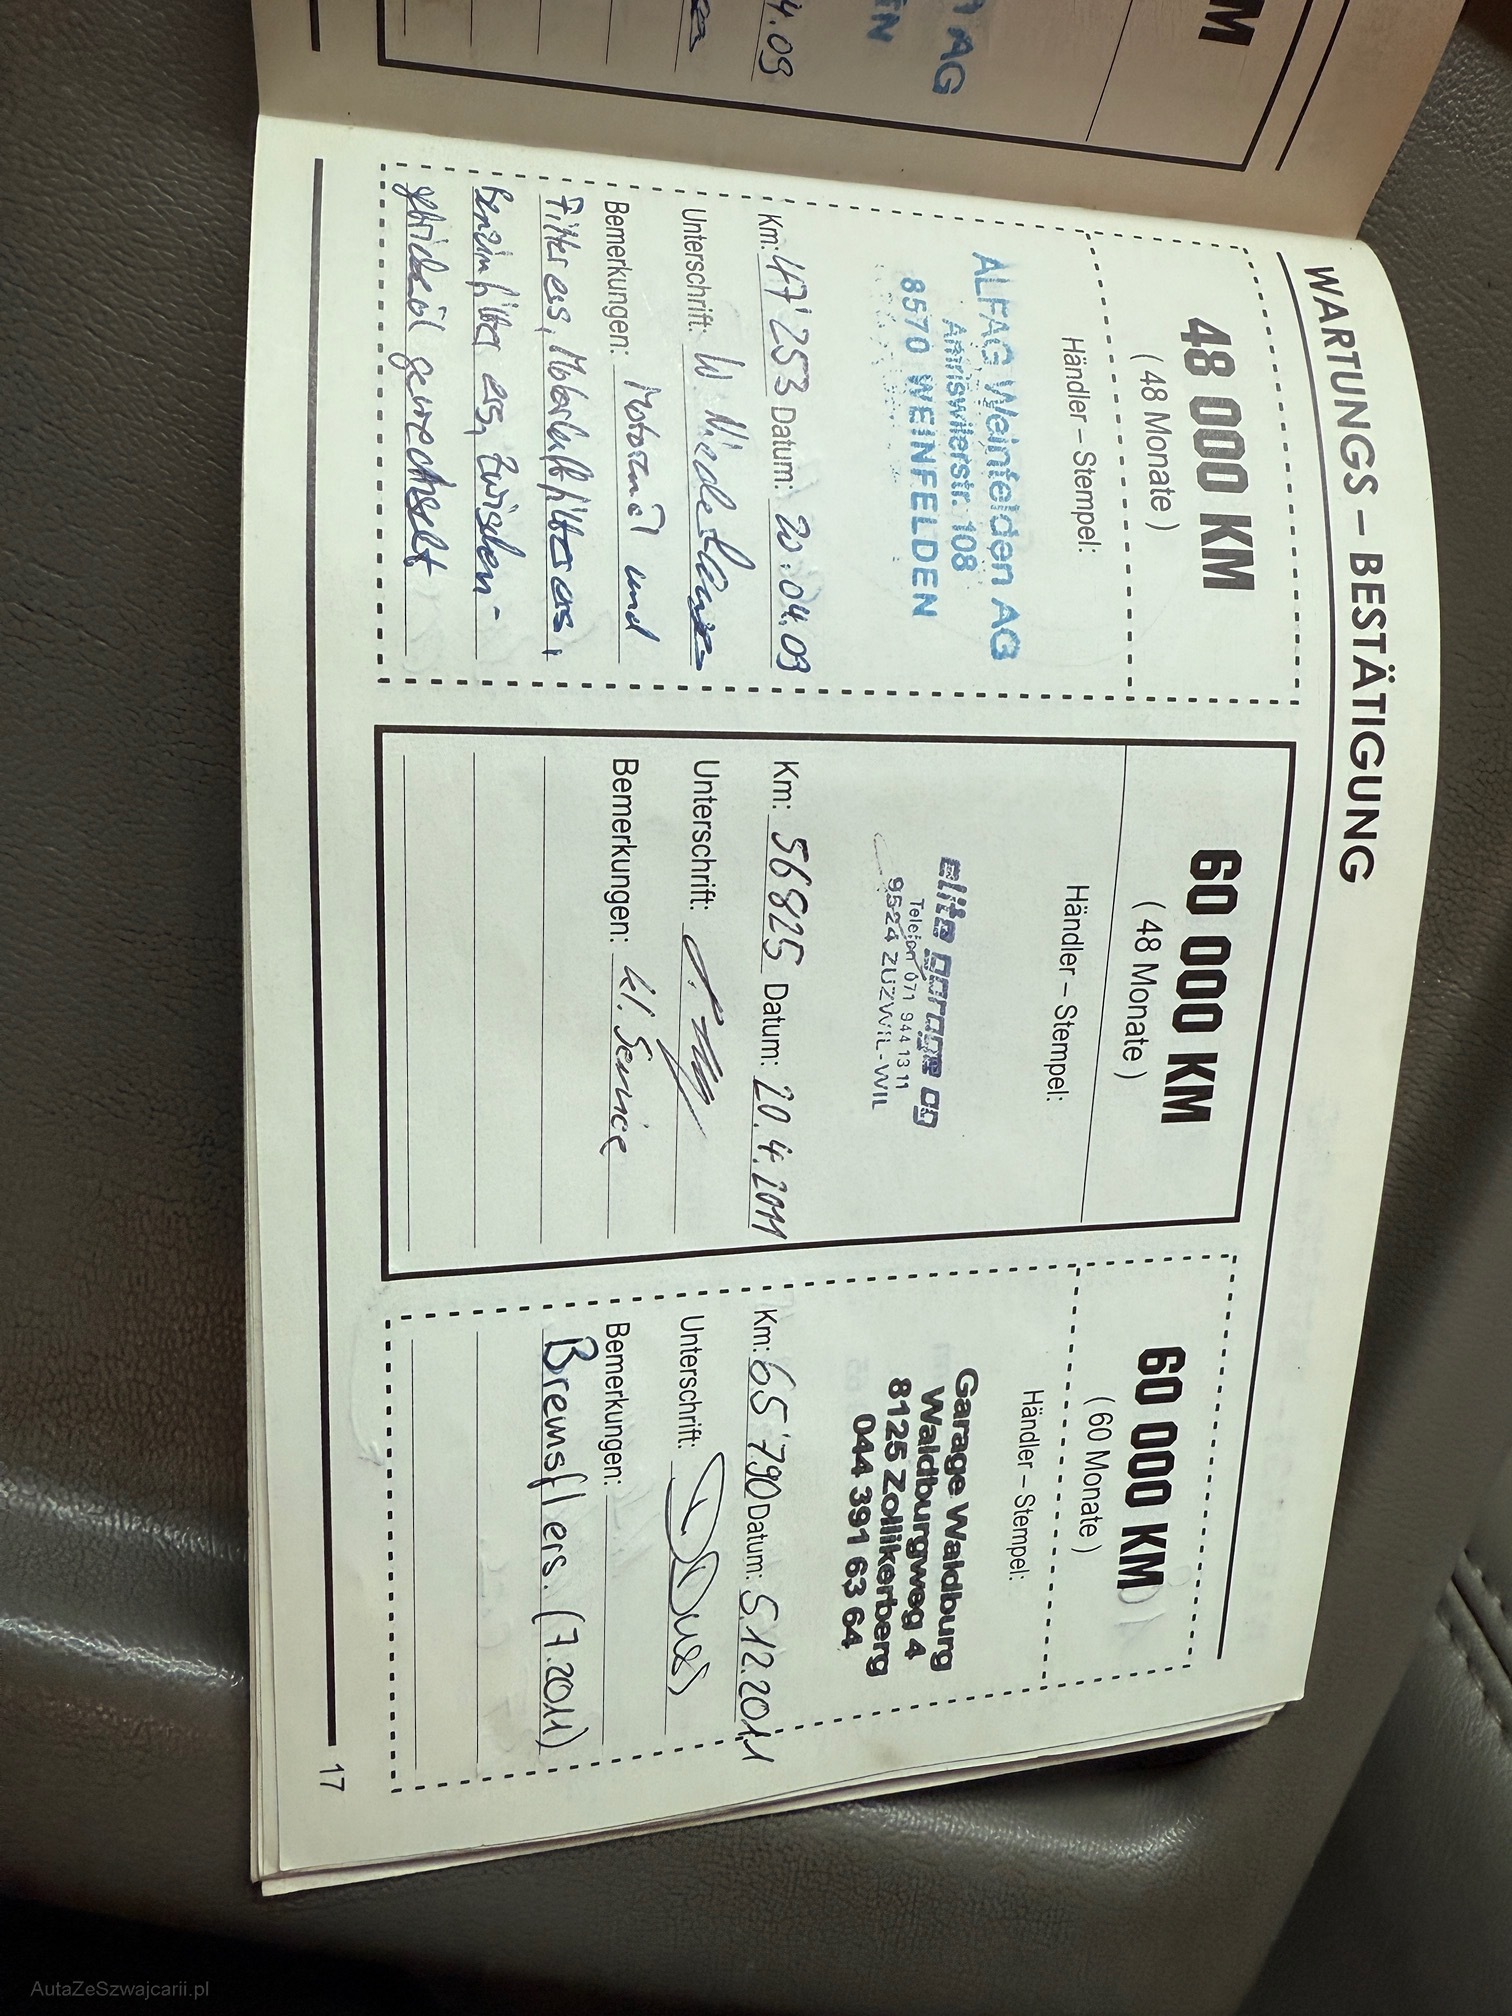 M
AG
EN
4.09
WARTUNGS – BESTÄTIGUNG
48 000 KM
( 48 Monate )
Händler – Stempel:
ALFAG Weinfelden AG
Amriswilerstr. 108
8570 WEINFELDEN
Km: 47'253 Datum: 20.04.09
Unterschrift:
Bemerkungen: Motoröl und
Filter ers, Motorluftfilter ers,
Benzinfilter ers, Zwischen-
getriebeöl gewechselt
60 000 KM
( 48 Monate )
Händler – Stempel:
elite garage ag
Telefon 071 944 13 11
9524 ZUZWIL-WIL
Km: 56825 Datum: 20.4.2011
Unterschrift:
Bemerkungen: kl. Service
60 000 KM
( 60 Monate )
Händler – Stempel:
Garage Waldburg
Waldburgweg 4
8125 Zollikerberg
044 391 63 64
Km: 65'790 Datum: 5.12.2011
Unterschrift:
Bemerkungen:
Bremsfl ers. (7.2011)
17
AutaZeSzwajcarii.pl